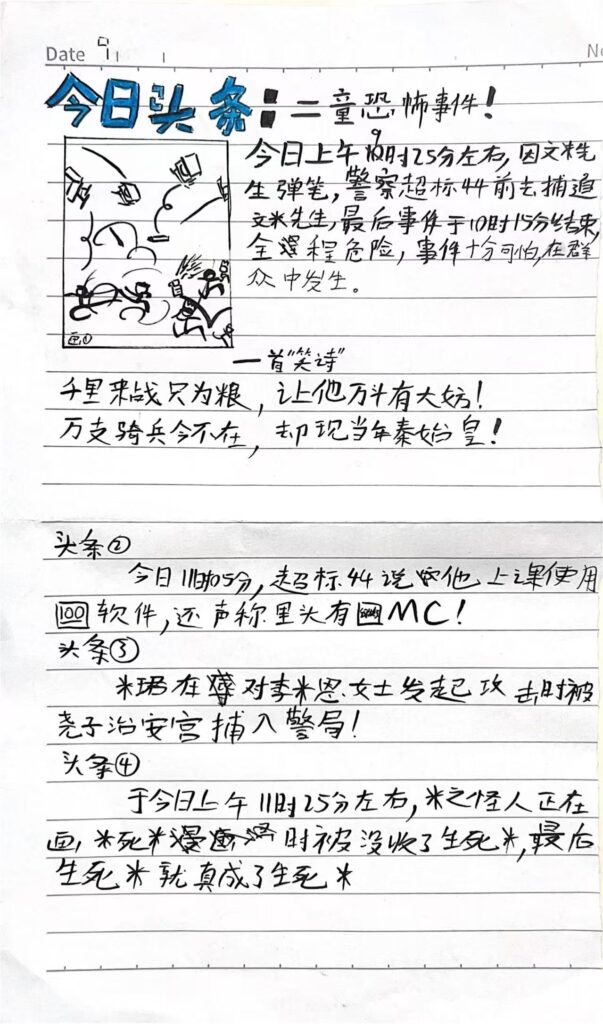 Date 9
No
今日头条:二童恐怖事件!
今日上午9时25分左右,因文米先
生弹笔,警察超标44前去捕追
文米先生,最后事件于10时15分结束,
全程危险,事件十分可怕,在群
众中发生。
画①
一首"笑诗"
千里来战只为粮,让他万斗有大妨!
万支骑兵今不在,却现当年秦始皇!
头条②
今日11时05分,超标44说他上课使用
100软件,还声称里头有MC!
头条③
米珺在对李米恩女士发起攻击时被
尧子治安官捕入警局!
头条④
于今日上午11时25分左右,米之怪人正在
画米死米漫画时被没收了生死米,最后
生死米就真成了生死米